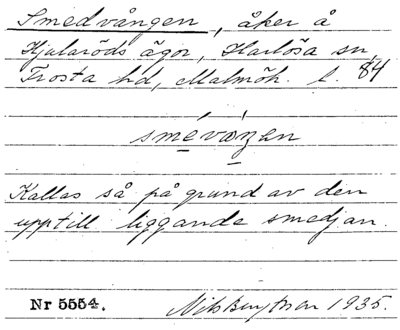 Smedvången, åker å
Hjularöds ägor, Harlösa sn,
Frosta hd, Malmöh. l. 84
smévåŋen
Kallas så på grund av den
upptill liggande smedjan.
Nr 5554. Nils Bengtson 1935.